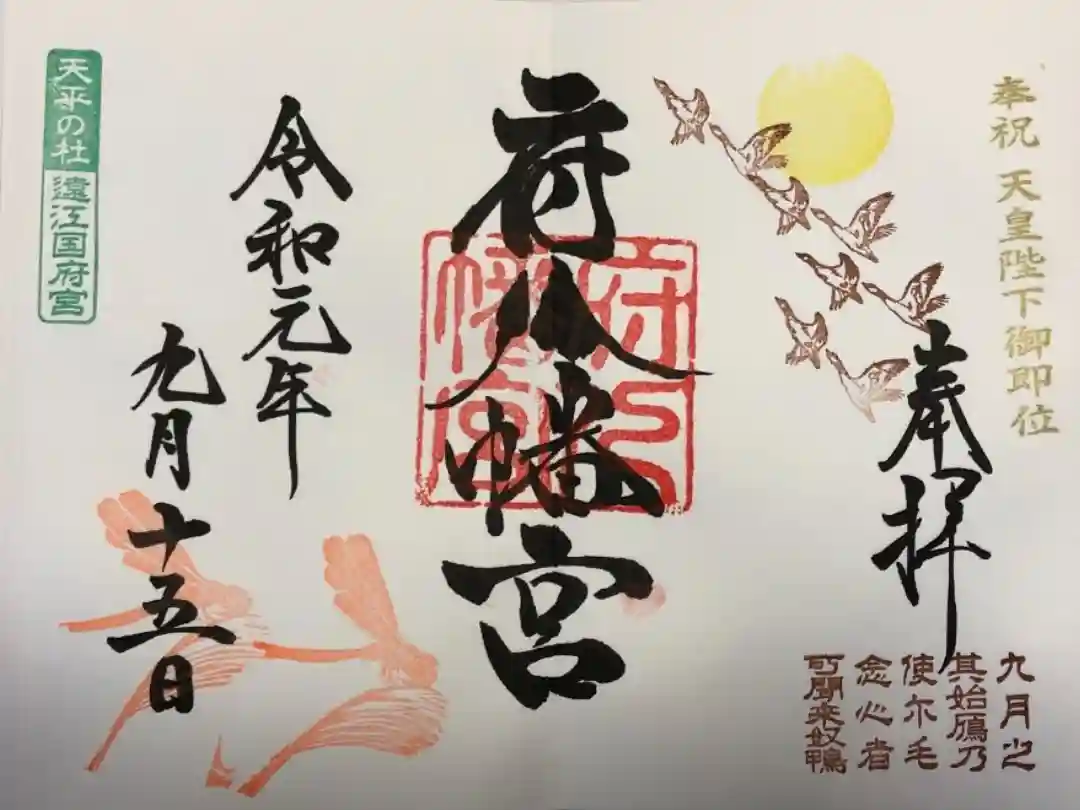 奉祝 天皇陛下御即位
奉拝
九月之
其始鴈乃
使尓毛
念心者
可聞来奴鴨
府八幡宮
府八
幡宮
令和元年
九月十五日
天平の杜 遠江国府宮